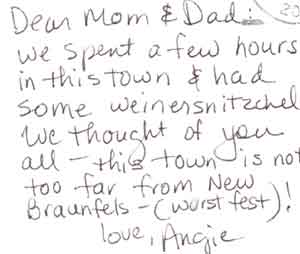 Dear Mom & Dad:
we spent a few hours
in this town & had
some weinersnitzchel
We thought of you
all - this town is not
too far from New
Braunfels - (wurst fest)!
love, Angie